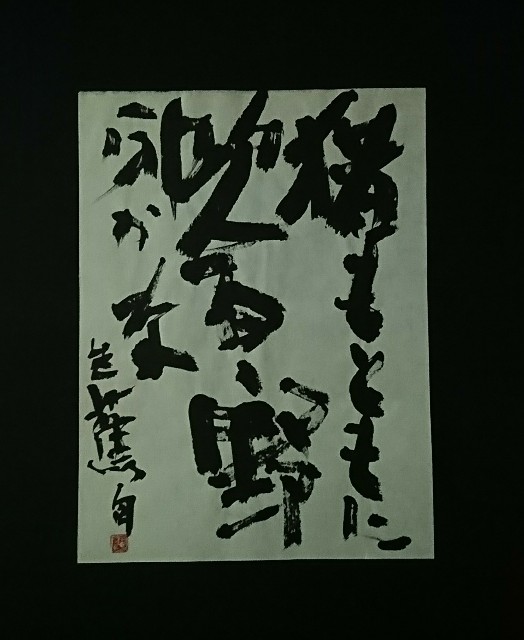 猪もともに
吹るゝ野
分かな
芭蕉句